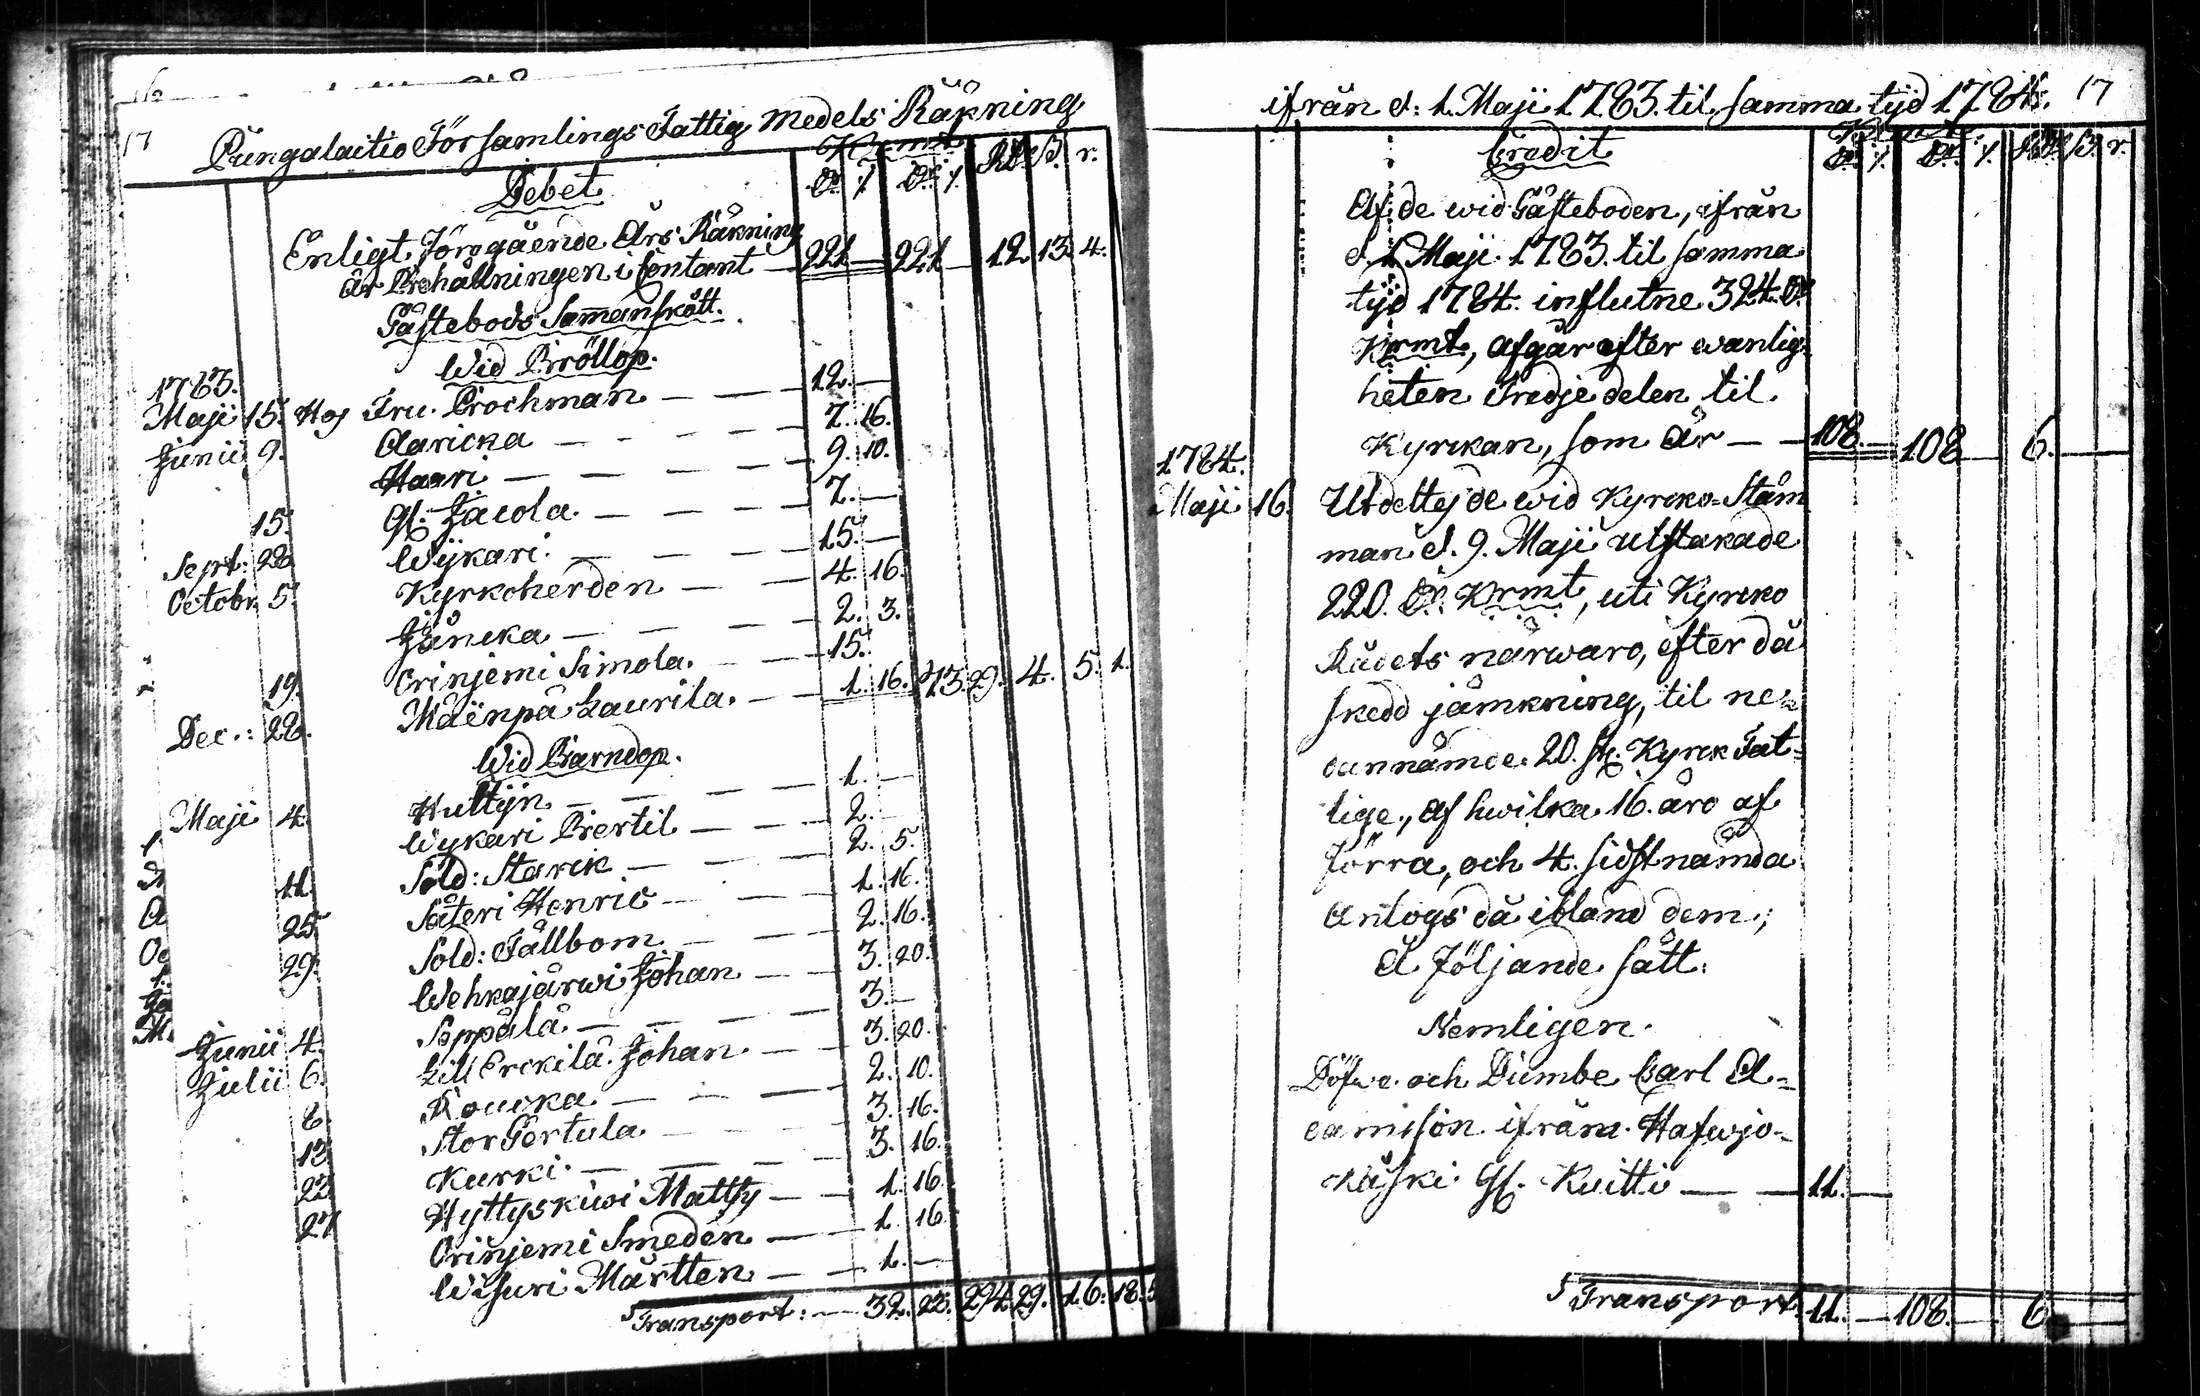 17
Pungalaitio Församlings Fattig Medels Räkning
Debet
Krmt
D. % D. % Rd. S. r.
Enligt Föregående Års Räkning
är Behållningen i Contant — 221. — 221 — 12. 13. 4.
Gästebods Sammanskått.
Wid Bröllop.
1783.
Maji 15. Hos Fru Brochman — — 12. —
Junii 9. Claricka — — 7. 16.
Haari — — 9. 10.
15. Gl. Jacola — — 7. —
Sept: 28 Wijkari — — 15. —
Octobr. 5. Kyrkoherden — — 4. 16.
Jäncka — — 2. 3.
Orinjemi Simola. — 15.
19. Mäenpä Laurila. — 1. 16. 73. 29. 4. 5. 1.
Dec.: 28.
Wid Barndop.
Maji 4. Huttijn — — 1. —
Wykari Bertil — — 2. —
Sold: Starck — — 2. 5.
11. Säteri Henric — — 1. 16.
25. Sold: Tällbom — — 2. 16.
29. Wehkajärwi Johan — 3. 20.
Seppälä — — 3. —
Junii 4. Lill Erckilä Johan — 3. 20.
Julii 6. Koucka — — 2. 10.
8. Stor Pertula — — 3. 16.
13 Kurki — — 3. 16.
23 Hyttyskuwi Matts — 1. 16.
27 Orinjemi Smeden — 1. 16.
Wisuri Mårtten — — 1. —
Transport: — 32. 23. 294. 29. 16. 18. 5
ifrån d: 1. Maji 1783. til samma tijd 1784. 17
Credit
D. % D. % Rd. S. r.
Af de wid Gästeboden, ifrån
d. 1 Maji 1783. til samma
tijd 1784. influtne 324. D.
Krmt, afgår efter wanlig-
heten Tredje delen til
Kyrckan, som är — — 108. — 108 — 6. —
1784.
Maji 16. Utdeltes de wid Kyrcko-Stäm
man d. 9. Maji utstakade
220. D. Krmt, uti Kyrcko
Rådets närwaro, efter då
skedd jämkning, til ne-
dannämde 20. st. Kyrck Fat-
tige, af hwilka 16. äro af
förra, och 4. sidstnämda
antogs då ibland dem;
À Följande sätt:
Nemligen.
Döfwe och Dumbe Carl A-
damsson ifrån Hafwjo-
käski Gl. Kuitti — — 11. —
Transport. 11. — 108. — 6. —